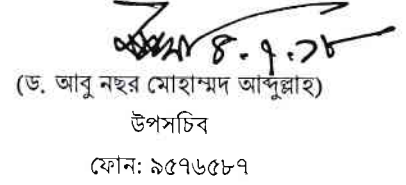 ৪.৭.১৮
(ড. আবু নছর মোহাম্মদ আব্দুল্লাহ)
উপসচিব
ফোন: ৯৫৭৬৫৮৭